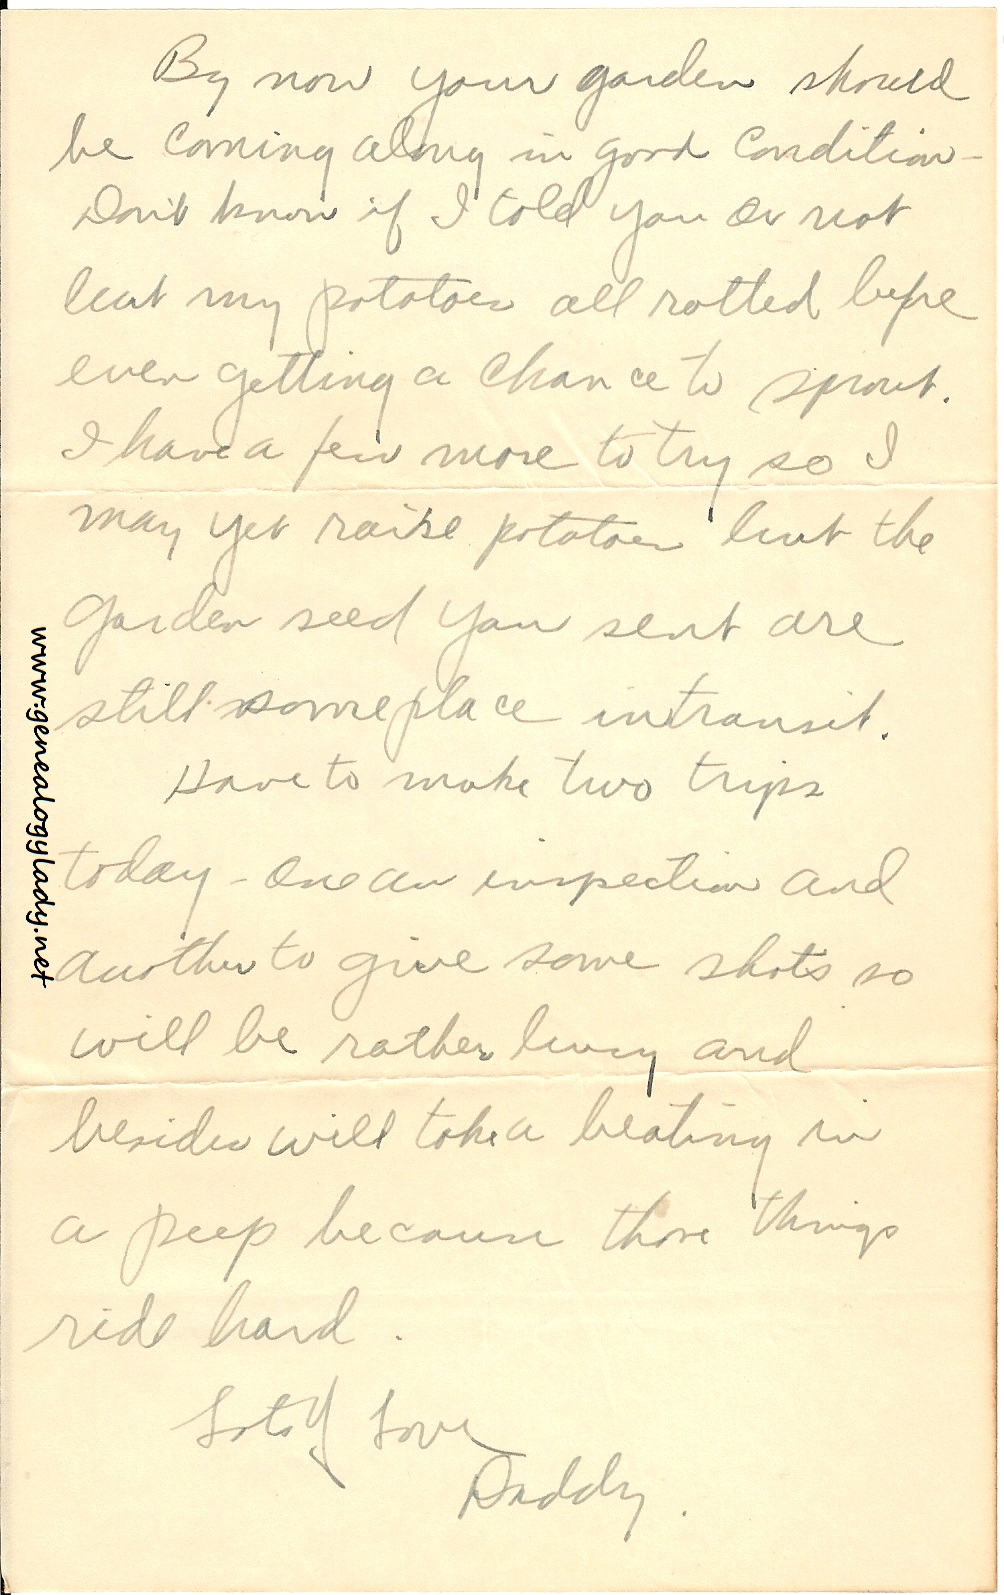 By now your garden should
be coming along in good condition-
Don't know if I told you or not
but my potatoes all rotted before
even getting a chance to sprout.
I have a few more to try so I
may yet raise potatoes but the
garden seed you sent are
still someplace in transit.
Have to make two trips
today - one an inspection and
another to give some shots so
will be rather busy and
besides will take a beating in
a peep because those things
ride hard.
Lots of Love
Daddy.
www.genealogylady.net